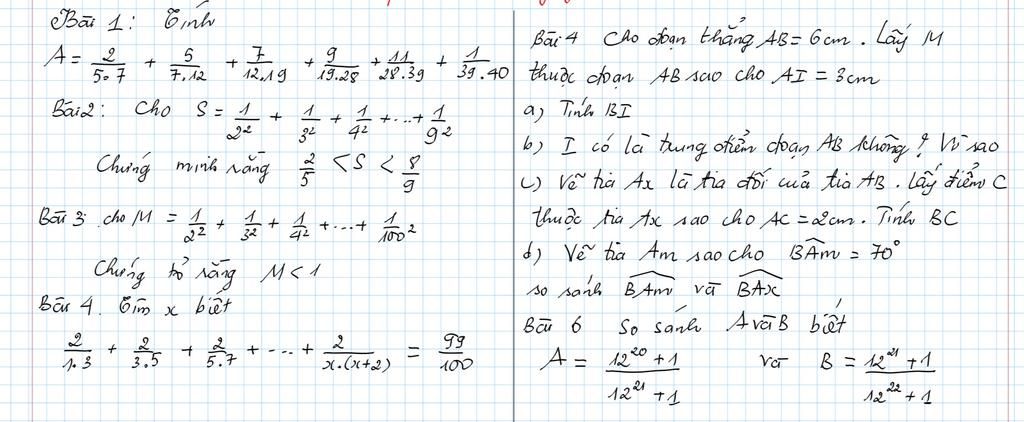 Bài 1: Tính
A = 2/5.7 + 5/7.12 + 7/12.19 + 9/19.28 + 11/28.39 + 1/39.40
Bài 2: Cho S = 1/2² + 1/3² + 1/4² + ... + 1/9²
Chứng minh rằng 2/5 < S < 8/9
Bài 3: cho M = 1/2² + 1/3² + 1/4² + ... + 1/100²
Chứng tỏ rằng M < 1
Bài 4. Tìm x biết
2/1.3 + 2/3.5 + 2/5.7 + ... + 2/x.(x+2) = 99/100
Bài 4 Cho đoạn thẳng AB = 6cm. Lấy M
thuộc đoạn AB sao cho AI = 3cm
a) Tính BI
b) I có là trung điểm đoạn AB không? Vì sao
c) Vẽ tia Ax là tia đối của tia AB. Lấy điểm C
thuộc tia Ax sao cho AC = 2cm. Tính BC
d) Vẽ tia Am sao cho BAm = 70°
so sánh BAm và BAx
Bài 6 So sánh A và B biết
A = 12²⁰+1/12²¹+1 và B = 12²¹+1/12²²+1